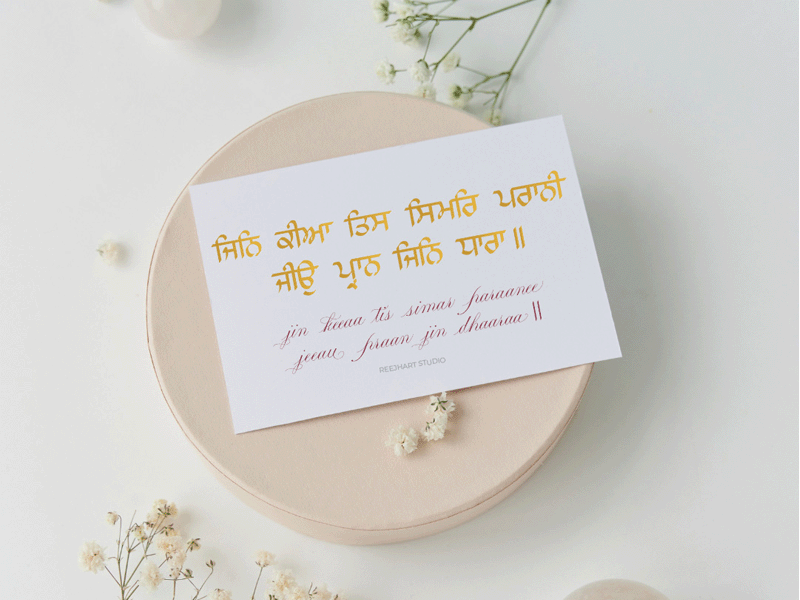 ਜਿਨਿ ਕੀਆ ਤਿਸ ਸਿਮਰਿ ਪਰਾਨੀ
ਜੀਉ ਪ੍ਰਾਨ ਜਿਨਿ ਧਾਰਾ ॥
jin keeaa tis simar paraanee
jeeau praan jin dhaaraa ||
REEJHART STUDIO